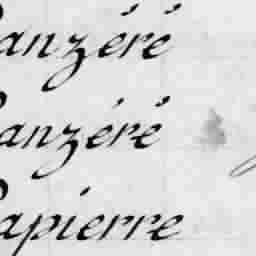 anzéré
anzéré
apierre